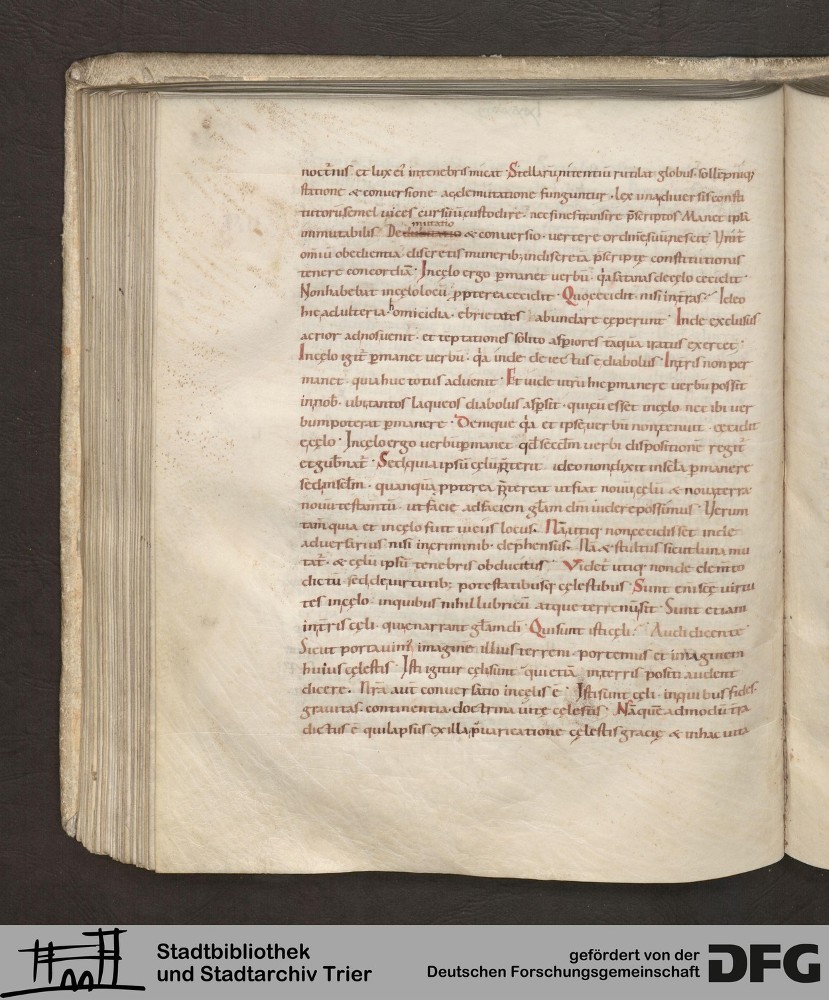 noct̅nis et lux ei̅ intenebris micat Stellaru̅ nitentiu̅ rutilat globus. sollempniq;
statione & conversione ac demutatione funguntur. Lex una diversis consti
tutoru̅ semel vices cursuu̅ custodire. nec fines transire p̅scriptos Manet ipsa
mutatio
immutabilis De & conversio. vertere ordine̅ suu̅ nescit
omniu̅ obedientia discretis muneribus indiscreta p̅scripte constitutionis
tenere concordia̅. Incelo ergo permanet verbu̅. q̅a satanas decelo cecidit.
Non habebat incelo locu̅. ppterea cecidit. Quo cecidit. nisi interras. Ideo
hic adulteria. homicidia. ebrietates abundare ceperunt. Inde exclusus
acrior adnos venit. et teptationes solito asperiores ta̅qua̅ iratus exercet.
Incelo igit̅ permanet verbu̅. q̅a inde deiectus e̅ diabolus. Interris non per
manet. quia huc totus advenit. Et vide utru̅ hic permanere verbu̅ possit
innob. ubi tantos laqueos diabolus aspersit. qui cu̅ esset incelo nec ibi ver
bum poterat permanere. Denique q̅a et ipse verbu̅ non tenuit. cecidit
ecelo. Incelo ergo verbu̅ permanet qd̅ secdm verbi dispositione̅ regit̅
et gubnat̅. Sed quia ipsu̅ celu̅ pterit ideo non dixit insecla permanere
sed inseclm. quamqua̅ ppterea ptereat ut fiat novu̅ celu̅ & nova terra
novu̅ testam̅tu̅. ut facie adfaciem gl̅am dni̅ videre possimus Verum
tam̅ quia et incelo fuit vicius locus. Na̅ utiq; non cecidisset inde
adversarius nisi incriminib. dephensus. Na̅ & stultus sicut luna mu
tat̅. & celu̅ ipsu̅ tenebris obducitus. Videt̅ utiq; non de elem̅to
dictu̅ sed de virtutib; potestatibusq; celestibus Sunt eni̅ sce virtu
tes incelo inquibus nihil lubricu̅ atque terrenu̅ sit. Sunt etiam
interris celi. qui enarrant gl̅am di̅ Qui sunt isti celi. Audi dicente̅
Sicut portavim̅ imagine̅ illius terreni portemus et imaginem
huius celestis. Isti igitur celi sunt qui etia̅ interris positi audent
dicere. Nr̅a aut̅ conversatio incelis e̅. Isti sunt celi. inquibus fides.
gravitas. continentia. doctrina vite celestis. Na̅ que̅admodu̅ terra
dictus e̅ qui lapsus exilla pvaricatione celestis gracie & inhac vita
Stadtbibliothek
und Stadtarchiv Trier
gefördert von der
Deutschen Forschungsgemeinschaft
DFG